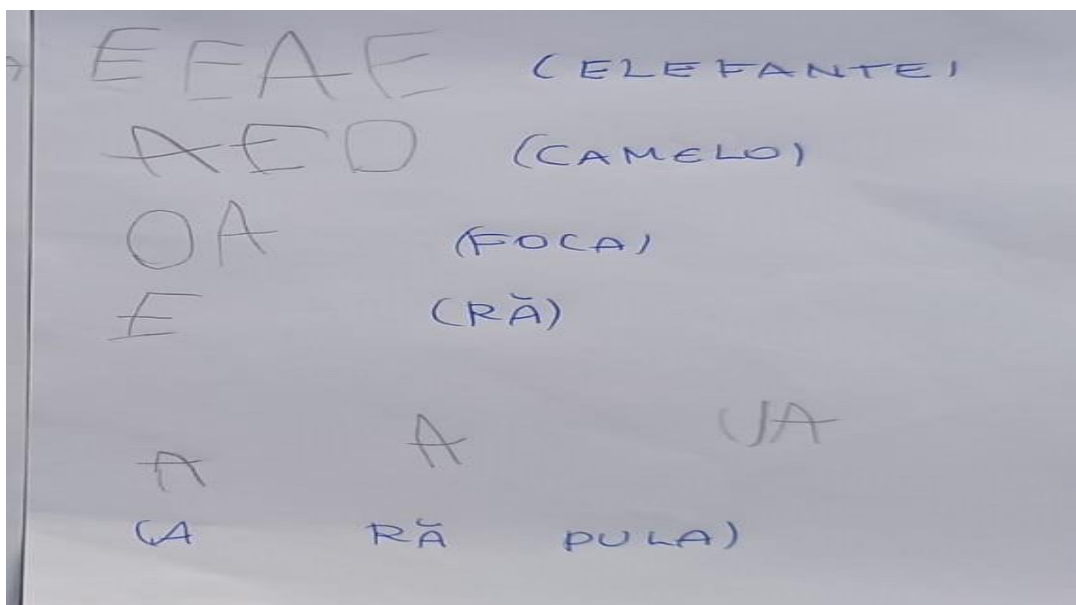 EEAE (ELEFANTE)
AEO (CAMELO)
OA (FOCA)
E (RÃ)
A A UA
(A RÃ PULA)